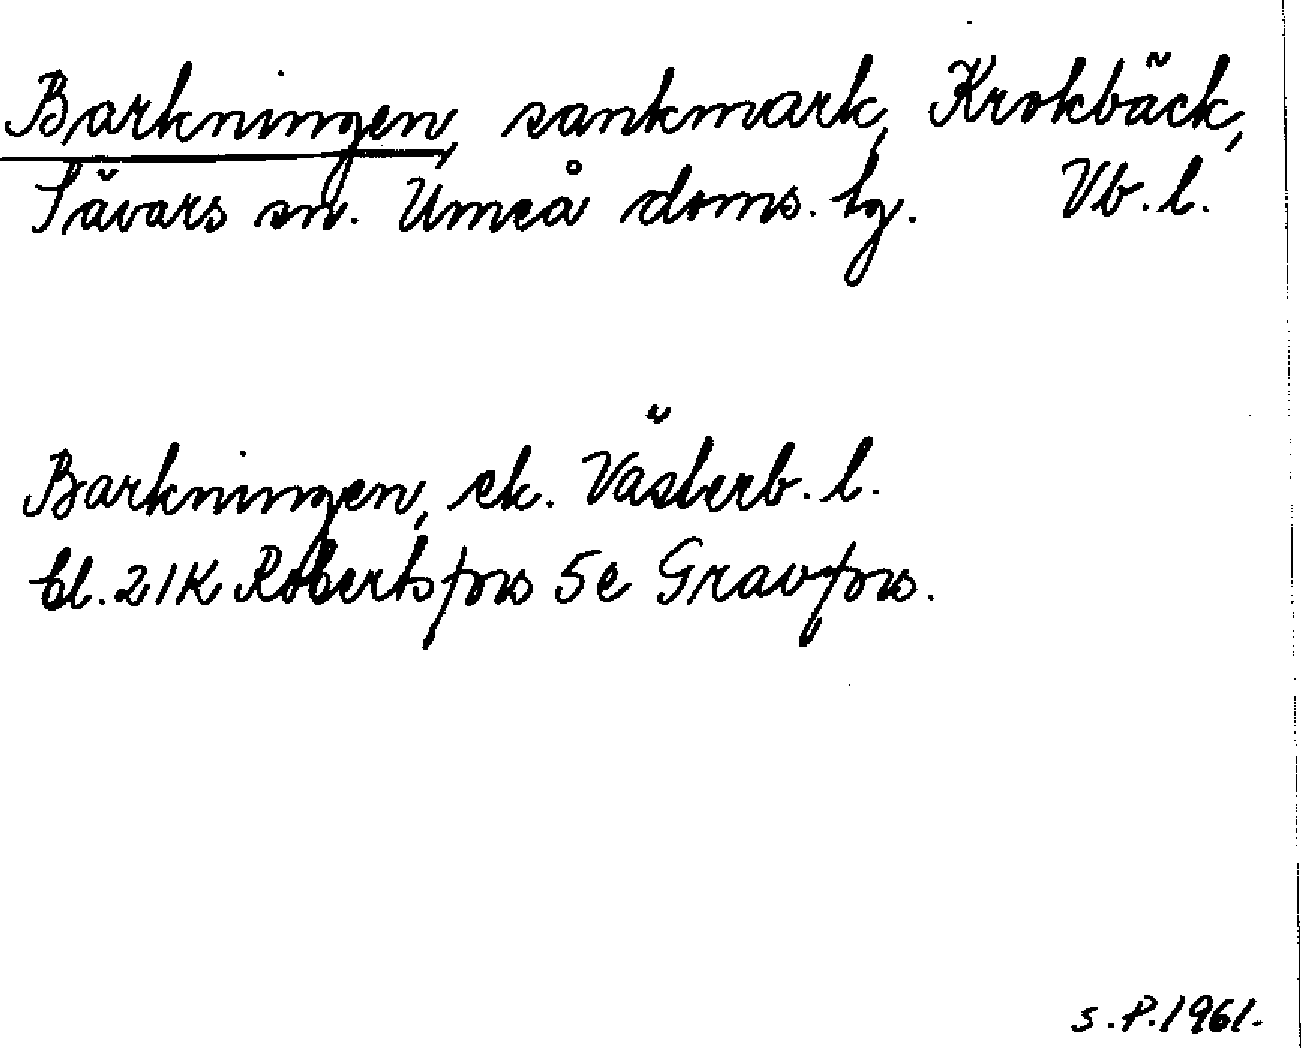 Barkningen, sankmark, Krokbäck,
Sävars sn. Umeå doms. tg. Vb. l.
Barkningen, ek. Västerb. l.
bl. 21K Robertsfors 5e Gravfors.
S.P. 1961.